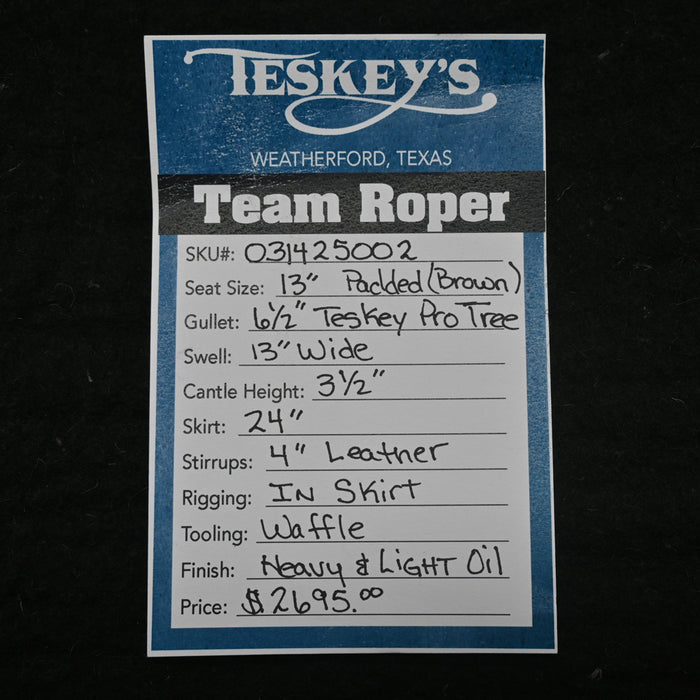 TESKEY'S
WEATHERFORD, TEXAS
Team Roper
SKU#: 031425002
Seat Size: 13" Padded (Brown)
Gullet: 6½" Teskey Pro Tree
Swell: 13" Wide
Cantle Height: 3½"
Skirt: 24"
Stirrups: 4" Leather
Rigging: In Skirt
Tooling: Waffle
Finish: Heavy & Light Oil
Price: $2695.00